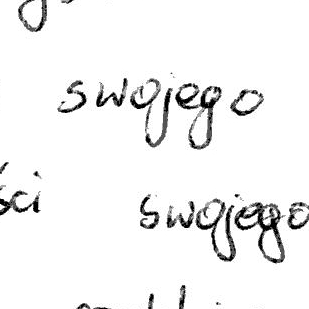 swojego
ści swojego